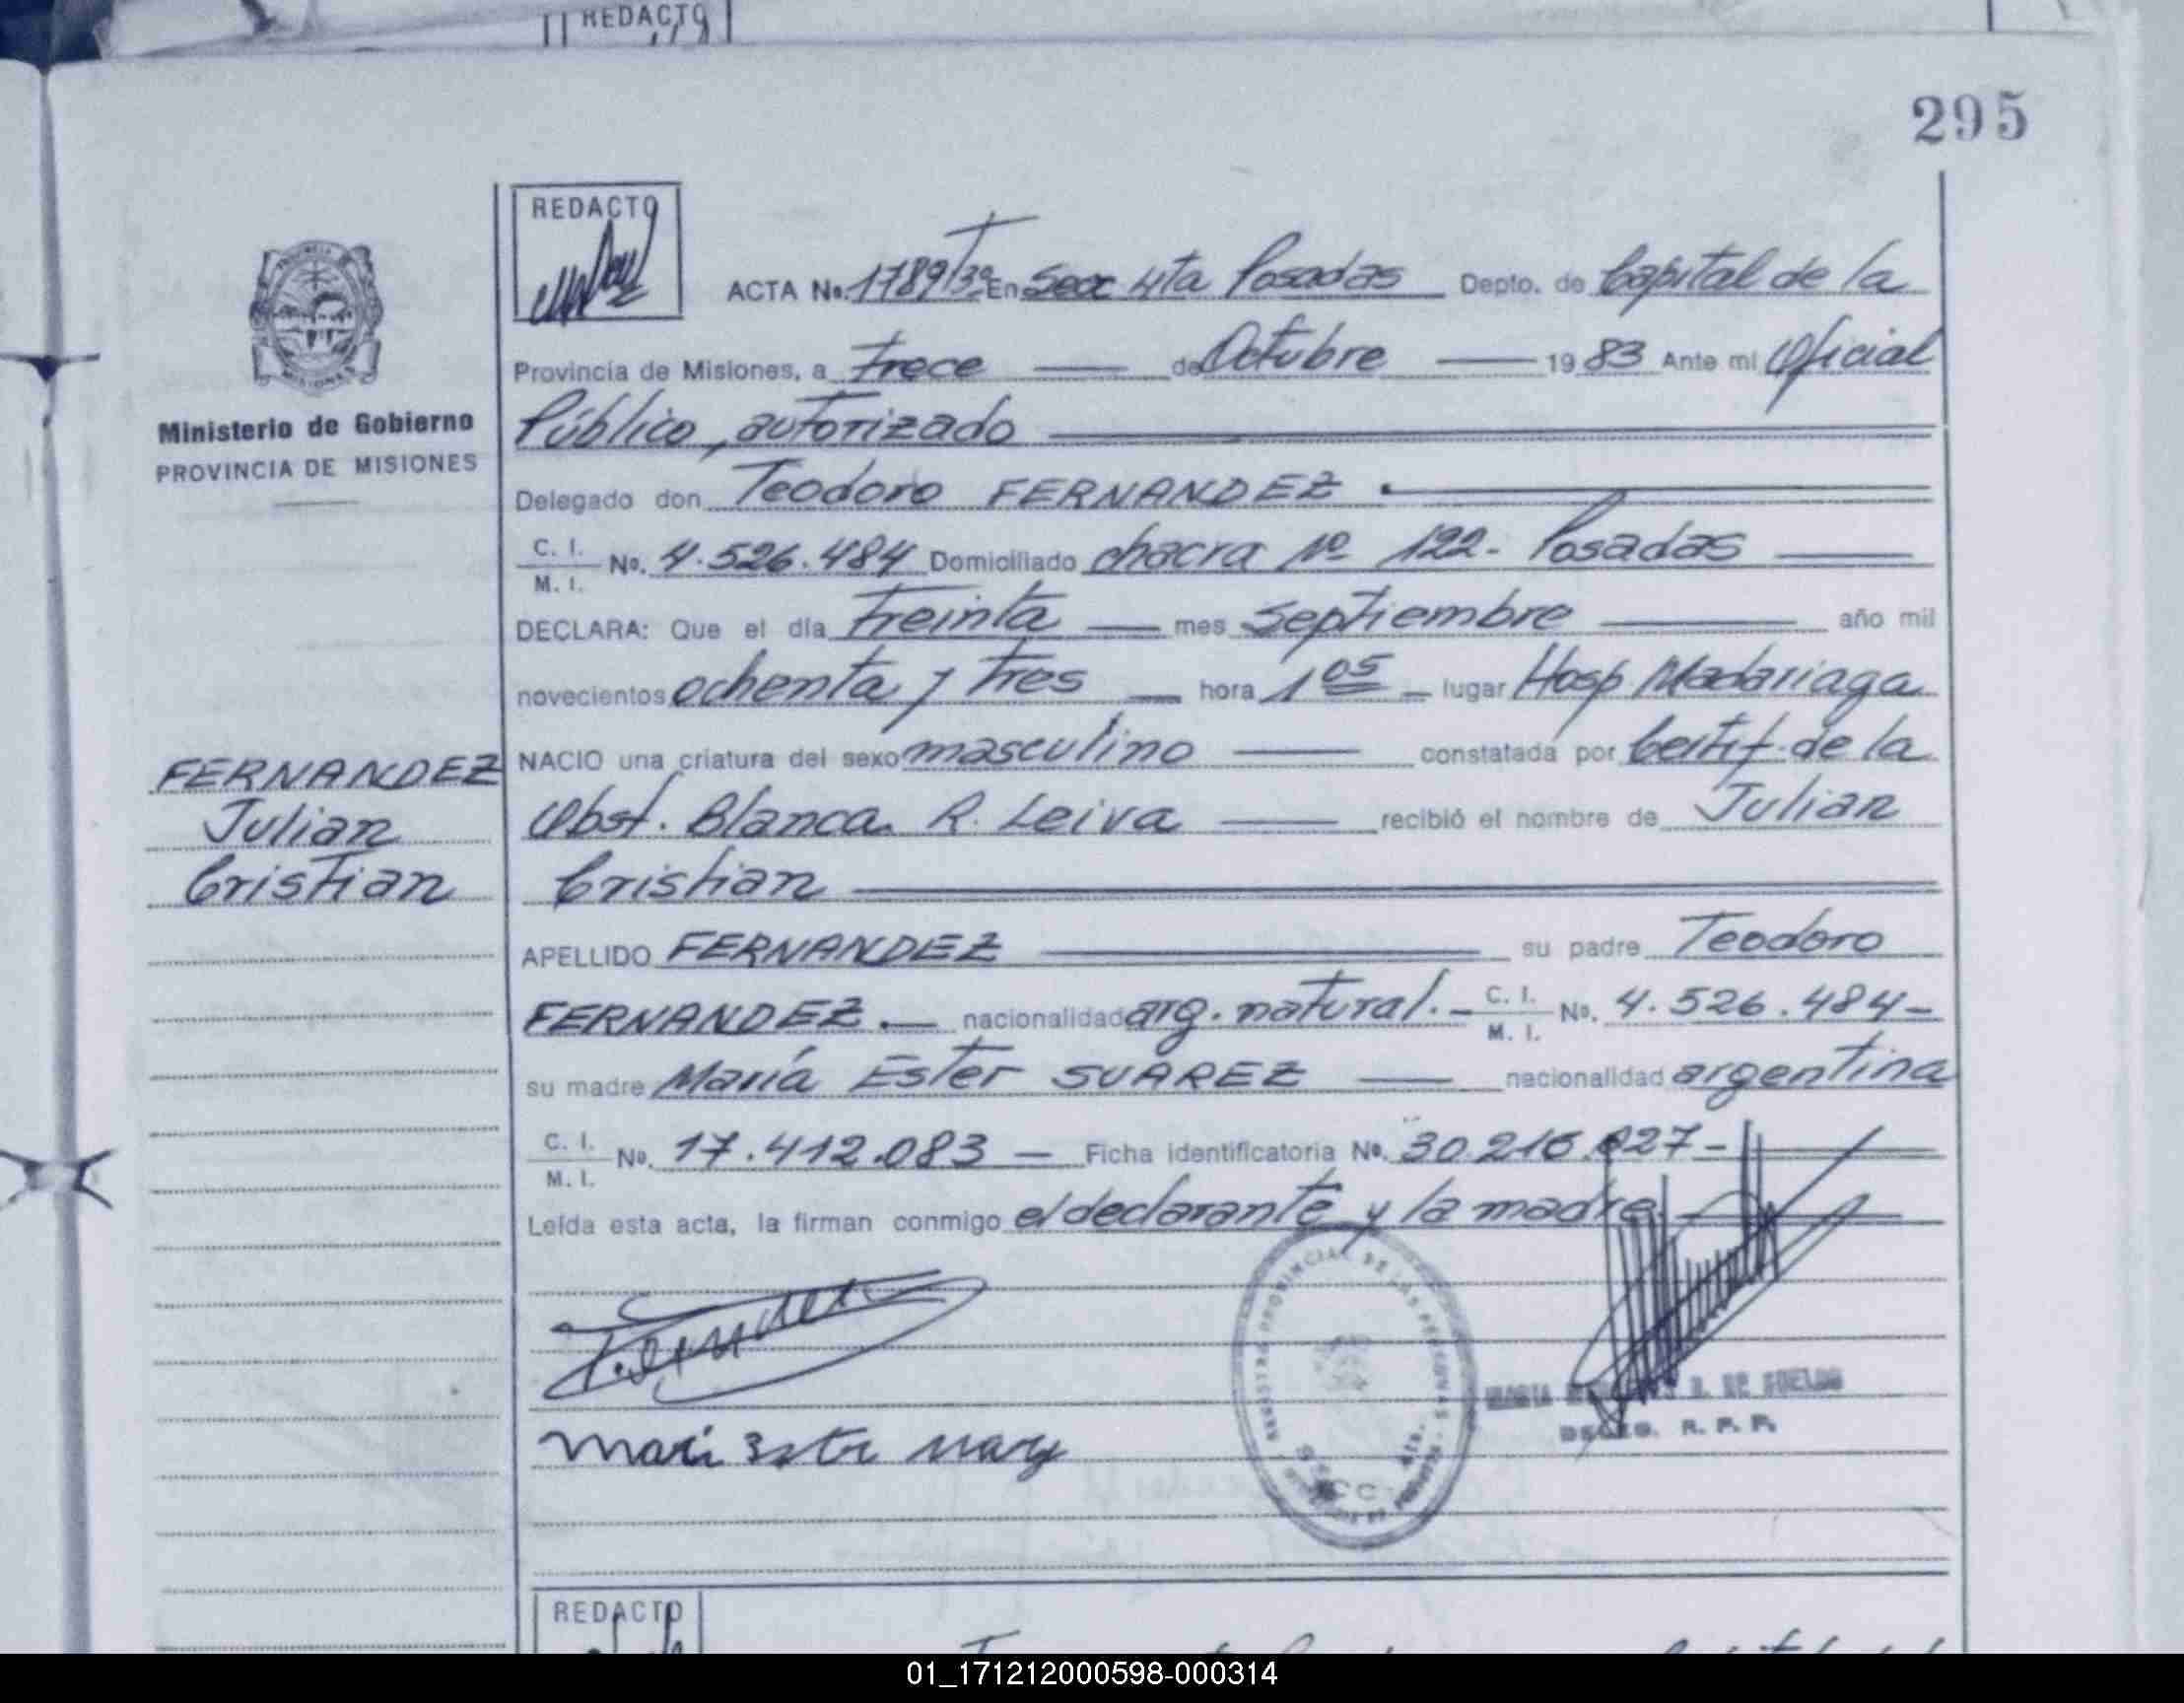 REDACTO
295
REDACTO
ACTA No. 1789/3º En Secc 4ta Posadas Depto. de Capital de la
Provincia de Misiones, a trece de Octubre 1983 Ante mi Oficial
Público, autorizado
Ministerio de Gobierno
PROVINCIA DE MISIONES
Delegado don Teodoro FERNANDEZ.
C. I. M. I. No. 4.526.484 Domiciliado chacra Nº 122- Posadas
DECLARA: Que el día treinta mes Septiembre año mil
novecientos ochenta y tres hora 1 05 lugar Hosp Madariaga
NACIO una criatura del sexo masculino constatada por Certif. de la
FERNANDEZ
Julian
Cristian
Obst. Blanca R. Leiva recibió el nombre de Julian
Cristian
APELLIDO FERNANDEZ su padre Teodoro
FERNANDEZ. nacionalidad arg. natural. C. I. M. I. No. 4.526.484-
su madre María Ester SUAREZ nacionalidad argentina
C. I. M. I. No. 17.412.083 Ficha identificatoria No. 30.216.027-
Leída esta acta, la firman conmigo el declarante y la madre
REGISTRO PROVINCIAL DE LAS PERSONAS
SECC 4ta.
D. DE SUELDO
R. P. P.
REDACTO
01_171212000598-000314